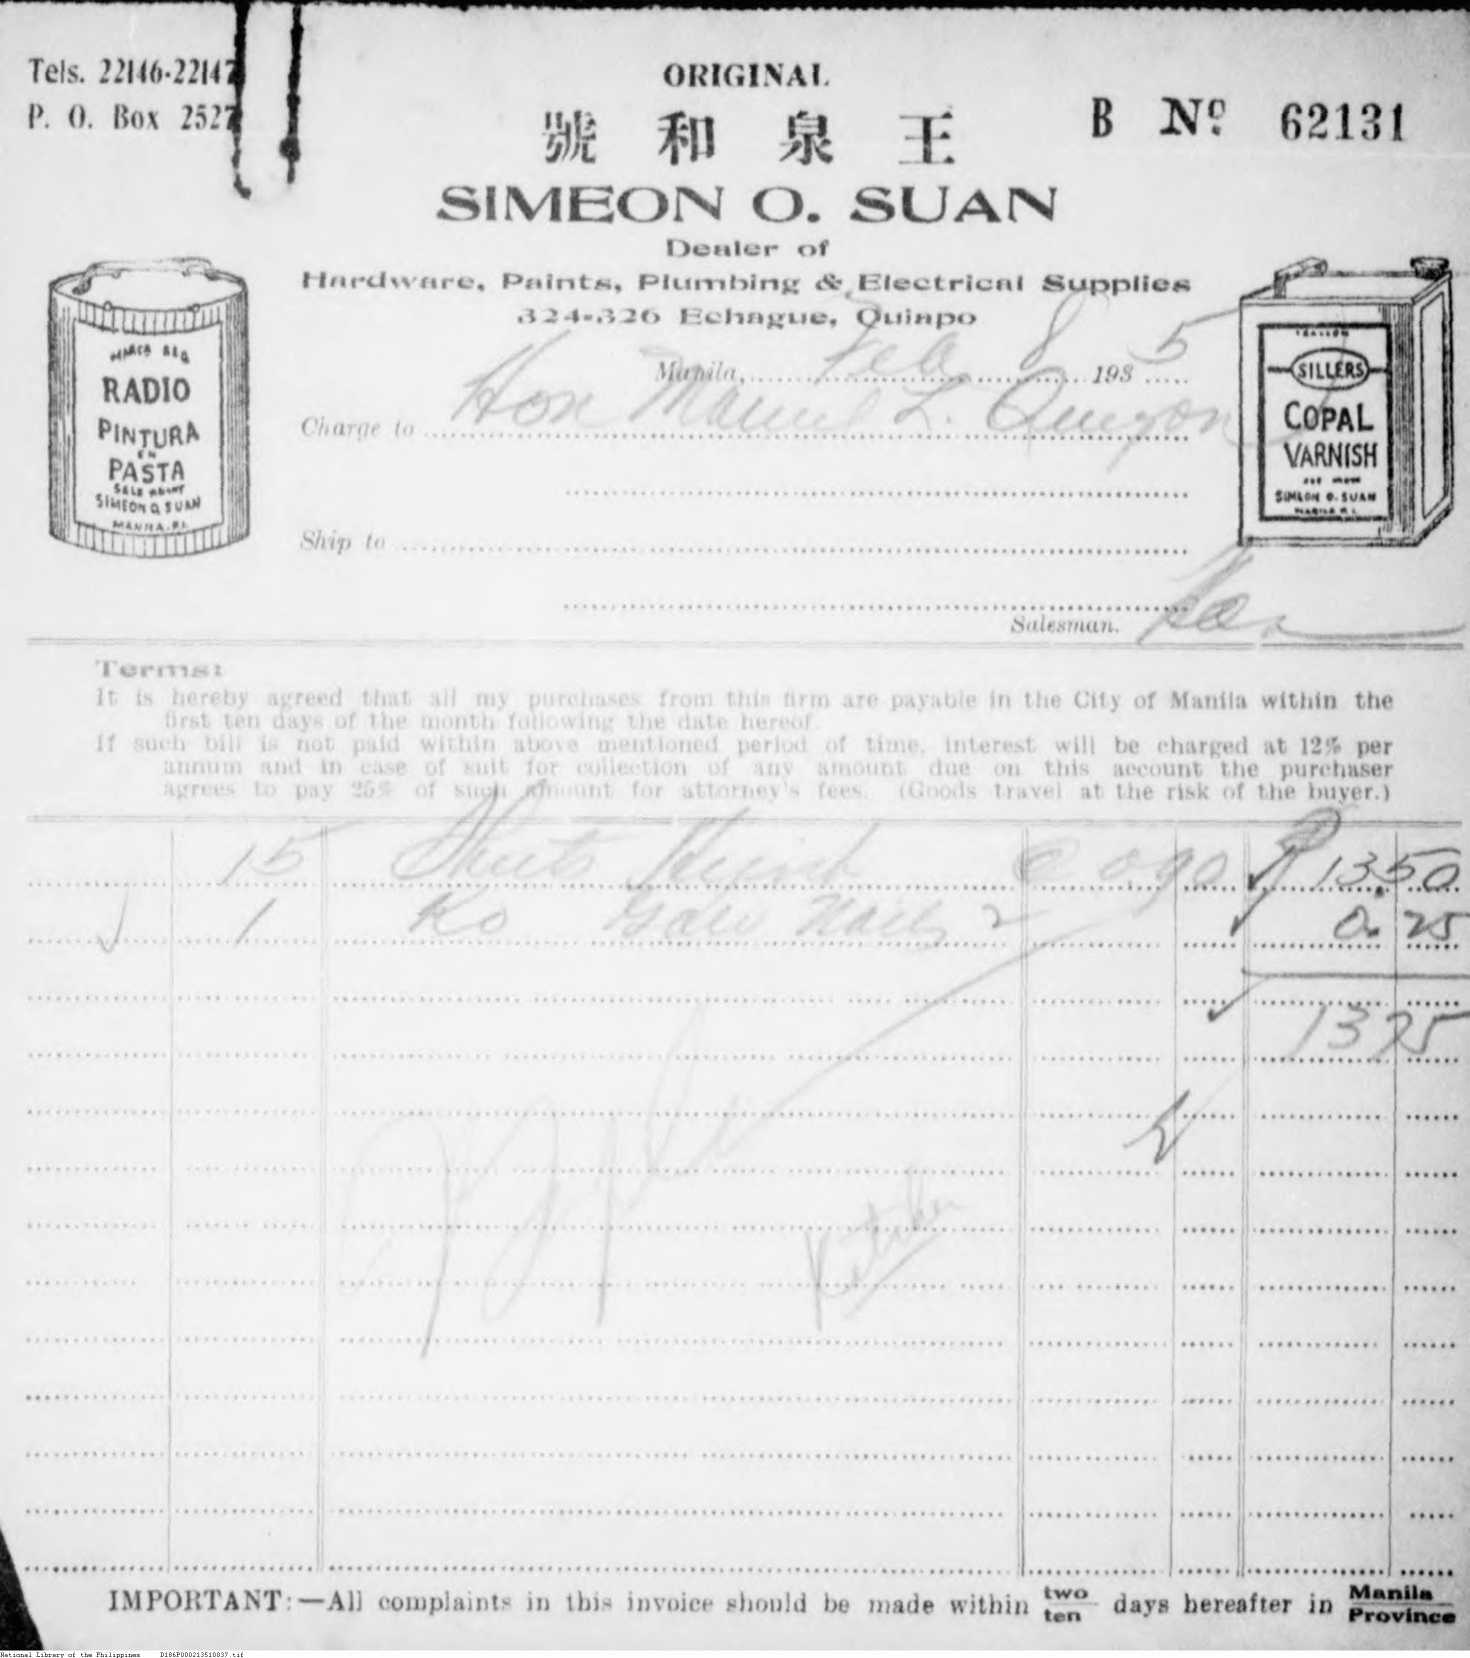 Tels. 22146-22147
P. O. Box 2527
ORIGINAL
B No. 62131
號和泉王
SIMEON O. SUAN
Dealer of
Hardware, Paints, Plumbing & Electrical Supplies
324-326 Echague, Quiapo
MARCA REG
RADIO
PINTURA
EN
PASTA
SOLE AGENT
SIMEON O. SUAN
MANILA. P.I.
SILLERS
COPAL
VARNISH
SIMEON O. SUAN
MANILA P. I.
Manila, Feb 8 1935
Charge to Hon Manuel L. Quezon
Ship to
Salesman.
Terms:
It is hereby agreed that all my purchases from this firm are payable in the City of Manila within the
first ten days of the month following the date hereof.
If such bill is not paid within above mentioned period of time, interest will be charged at 12% per
annum and in case of suit for collection of any amount due on this account the purchaser
agrees to pay 25% of such amount for attorney's fees. (Goods travel at the risk of the buyer.)
15 Sheets @ 0.90 ₱ 13.50
1 Ko Galv Nails 2 0.25
13 75
Kitchen
IMPORTANT:—All complaints in this invoice should be made within two/ten days hereafter in Manila/Province
National Library of the Philippines D186P000213510837.tif